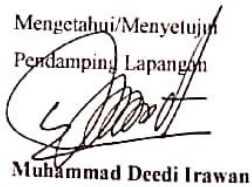 Mengetahui/Menyetujui
Pendamping Lapangan
Muhammad Deedi Irawan